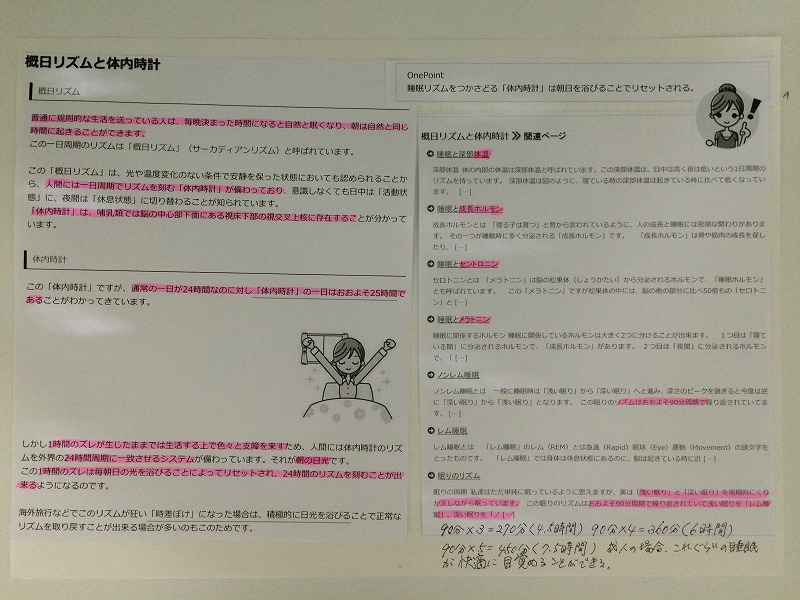 概日リズムと体内時計
概日リズム
普通に規則的な生活を送っている人は、毎晩決まった時間になると自然と眠くなり、朝は自然と同じ
時間に起きることができます。
この一日周期のリズムは「概日リズム」（サーカディアンリズム）と呼ばれています。
この「概日リズム」は、光や温度変化のない条件で安静を保った状態においても認められることか
ら、人間には一日周期でリズムを刻む「体内時計」が備わっており、意識しなくても日中は「活動状
態」に、夜間は「休息状態」に切り替わることが知られています。
「体内時計」は、哺乳類では脳の中心部下面にある視床下部の視交叉上核に存在することが分かって
います。
体内時計
この「体内時計」ですが、通常の一日が24時間なのに対し「体内時計」の一日はおおよそ25時間で
あることがわかってきています。
しかし1時間のズレが生じたままでは生活する上で色々と支障を来すため、人間には体内時計のリズ
ムを外界の24時間周期に一致させるシステムが備わっています。それが朝の日光です。
この1時間のズレは毎朝日の光を浴びることによってリセットされ、24時間のリズムを刻むことが出
来るようになるのです。
海外旅行などでこのリズムが狂い「時差ぼけ」になった場合は、積極的に日光を浴びることで正常な
リズムを取り戻すことが出来る場合が多いのもこのためです。
OnePoint
睡眠リズムをつかさどる「体内時計」は朝日を浴びることでリセットされる。
概日リズムと体内時計 ≫ 関連ページ
睡眠と深部体温
深部体温 体の内部の体温は深部体温と呼ばれています。この深部体温は、日中は高く夜は低いという1日周期の
リズムを持っています。 深部体温は図のように、寝ている時の深部体温は起きている時に比べて低くなっていま
す。 […]
睡眠と成長ホルモン
成長ホルモンとは 「寝る子は育つ」と昔から言われているように、人の成長と睡眠には密接な関わりがありま
す。 その一つが睡眠時に多く分泌される「成長ホルモン」です。 「成長ホルモン」は骨や筋肉の成長を促し
たり、[…]
睡眠とセントロニン
セロトニンとは 「メラトニン」は脳の松果体（しょうかたい）から分泌されるホルモンで、「睡眠ホルモン」
とも呼ばれています。 この「メラトニン」ですが松果体の中には、脳の他の部分に比べ50倍もの「セロトニ
ン」と […]
睡眠とメラトニン
睡眠に関係するホルモン 睡眠に関係しているホルモンは大きく2つに分けることが出来ます。 1つ目は「寝て
いる間」に分泌されるホルモンで、「成長ホルモン」があります。 2つ目は「夜間」に分泌されるホルモン
で、「 […]
ノンレム睡眠
ノンレム睡眠とは 一般に睡眠時は「浅い眠り」から「深い眠り」へと進み、深さのピークを過ぎると今度は逆
に「深い眠り」から「浅い眠り」となります。 この眠りのリズムはおおよそ90分周期で取り返されていてま
す。 […]
レム睡眠
レム睡眠とは 「レム睡眠」のレム（REM）とは急速（Rapid）眼球（Eye）運動（Movement）の頭文字を
とったものです。 「レム睡眠」では身体は休息状態にあるのに、脳は起きている時に近 […]
眠りのリズム
眠りの周期 私達はただ単純に眠っているように思えますが、実は「浅い眠り」と「深い眠り」を周期的にくり
かえしながら眠っています。 この眠りのリズムはおおよそ90分周期で繰り返されていて浅い眠りを「レム睡
眠」、深い眠りを「ノ […]
90分×3=270分(4.5時間) 90分×4=360分(6時間)
90分×5=450分(7.5時間) 成人の場合、これぐらいの睡眠
が快適に目覚めることができる。